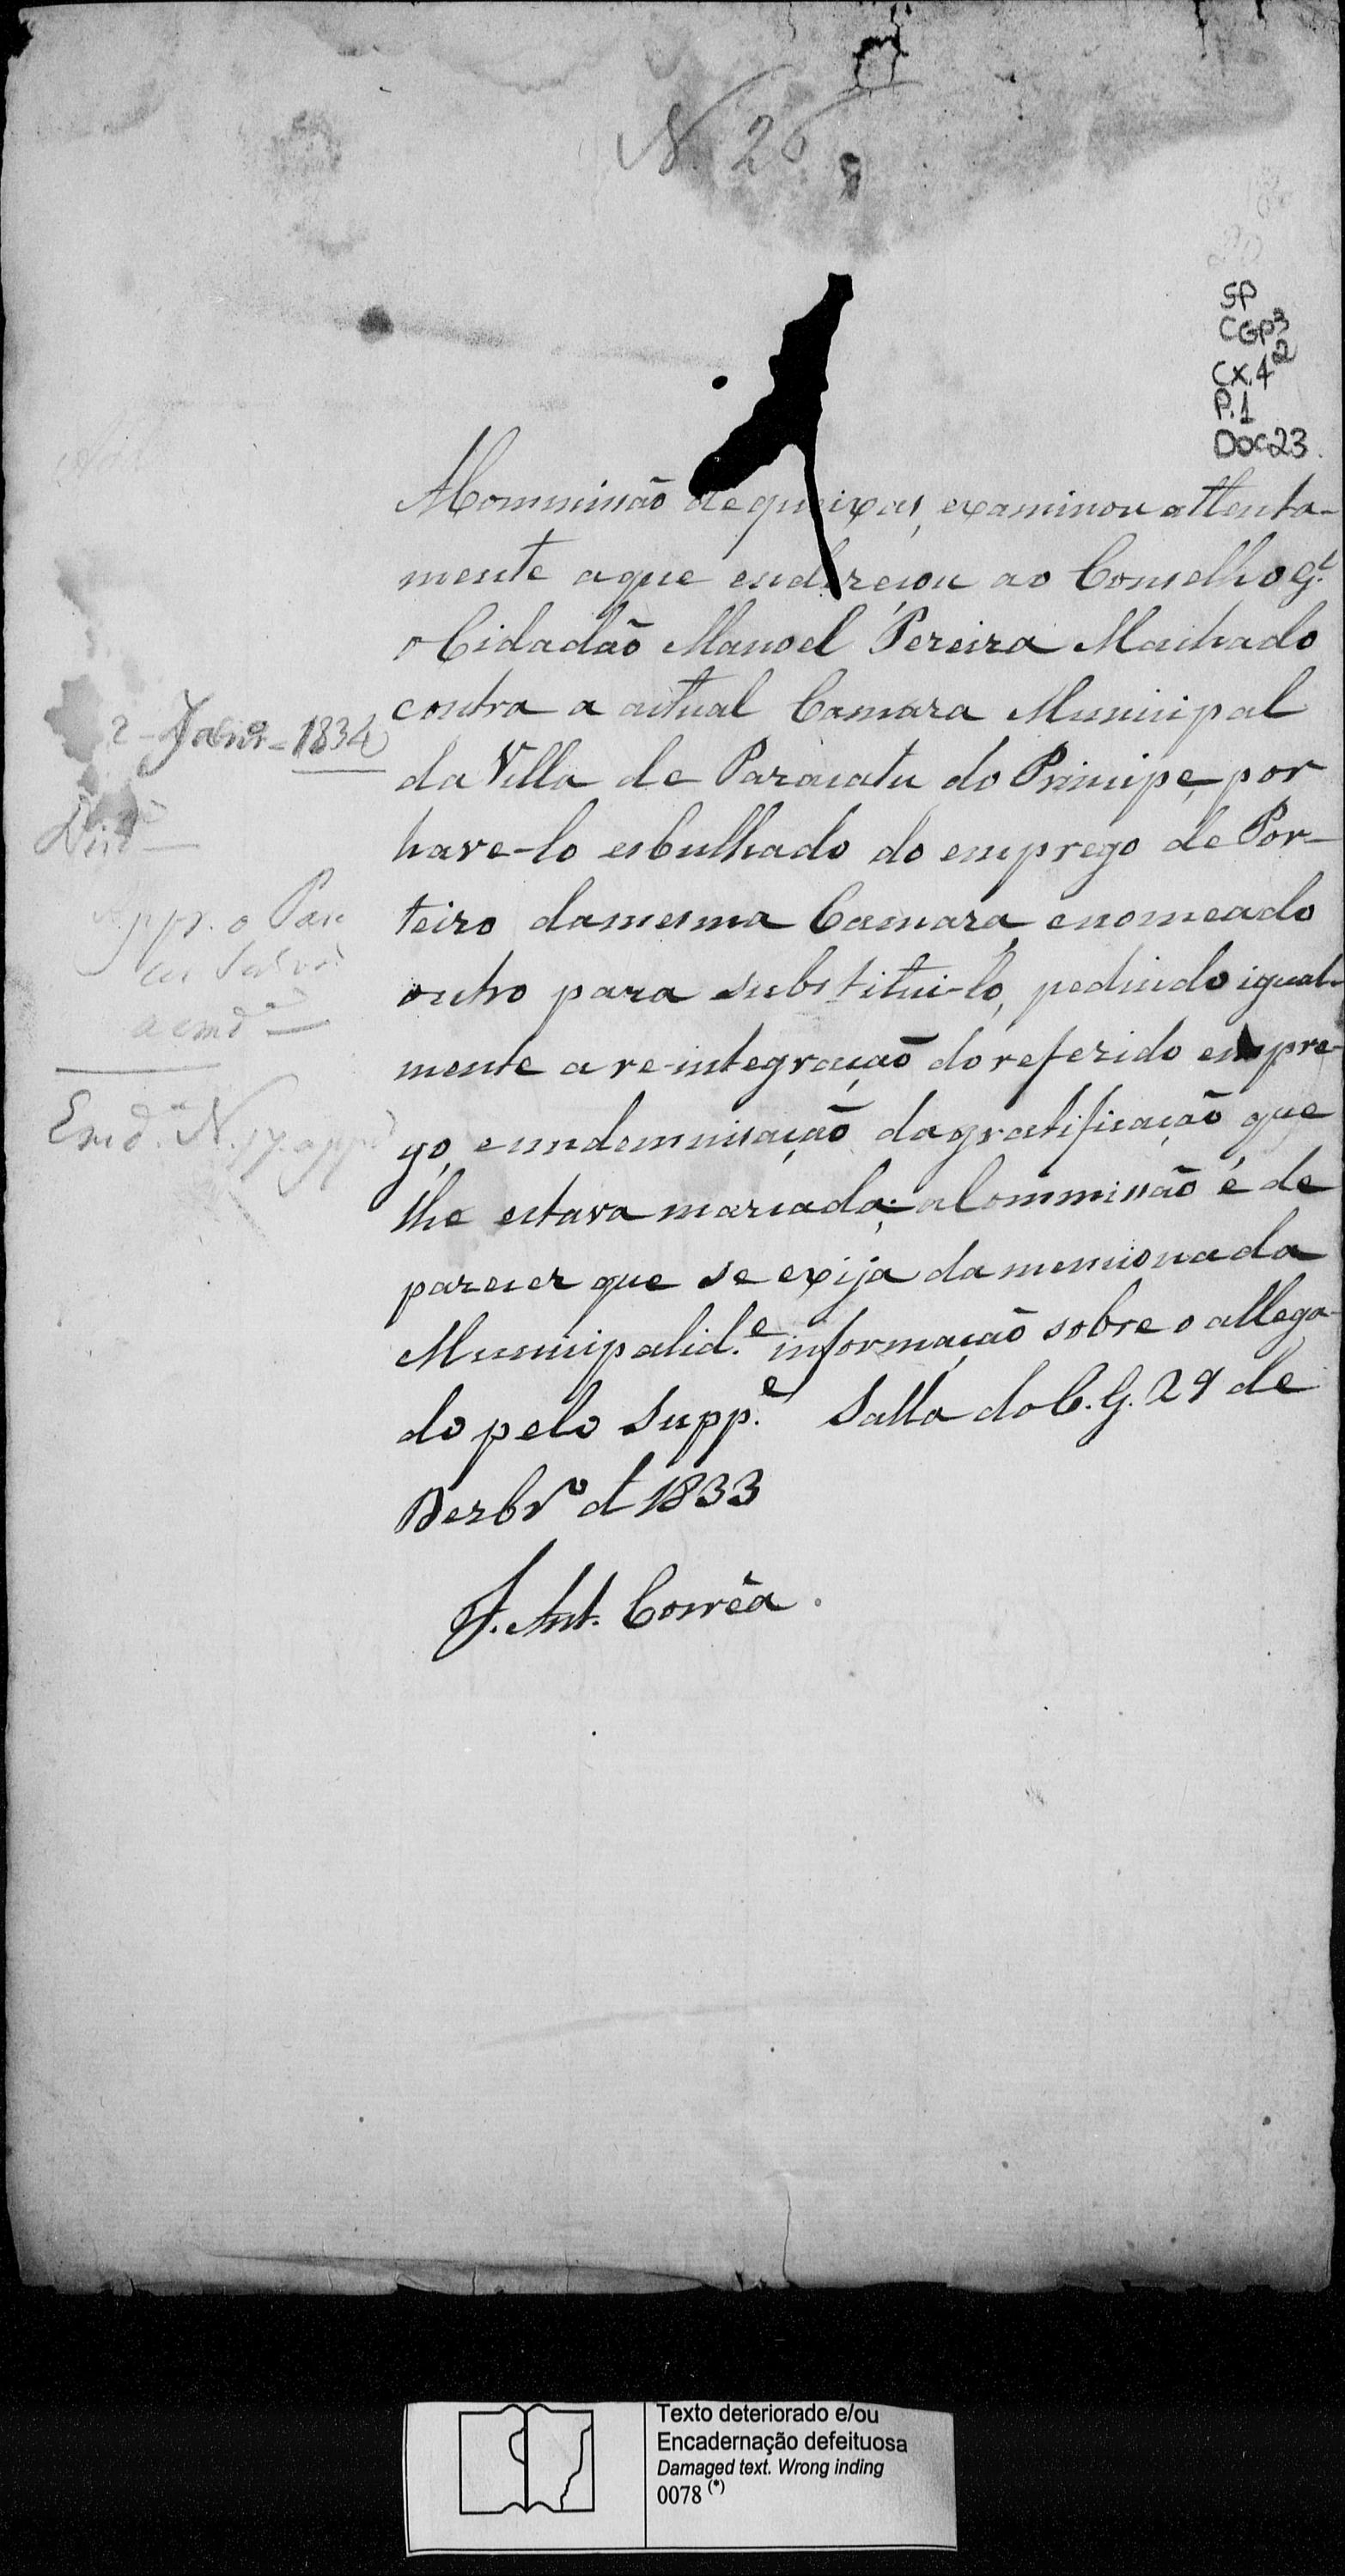 N. 26
SP
CGP3
Cx.42
P.1
Doc 23.
A Commissão de queixas, examinou attenta-
mente a que endereçou ao Conselho G.l
o Cidadão Manoel Pereira Machado
contra a actual Camara Municipal
da Villa de Paracatu do Principe, por
have-lo esbulhado do emprego de Por-
teiro da mesma Camara, e nomeado
outro para substitui-lo, pedindo igual-
mente a re-integração do referido empre-
go, e indemnisação da gratificação que
lhe estava marcada; a Commissão é de
parecer que se exija da mencionada
Municipalid.e informação sobre o allega-
do pelo Supp.e Salla do C. G. 29 de
Dezbr.o d 1833
J. Ant. Corrêa.
2 - Janr.o - 1834
App. o Par
a emd.a
Emd.a N. 17. app.
Texto deteriorado e/ou
Encadernação defeituosa
Damaged text. Wrong inding
0078 (*)